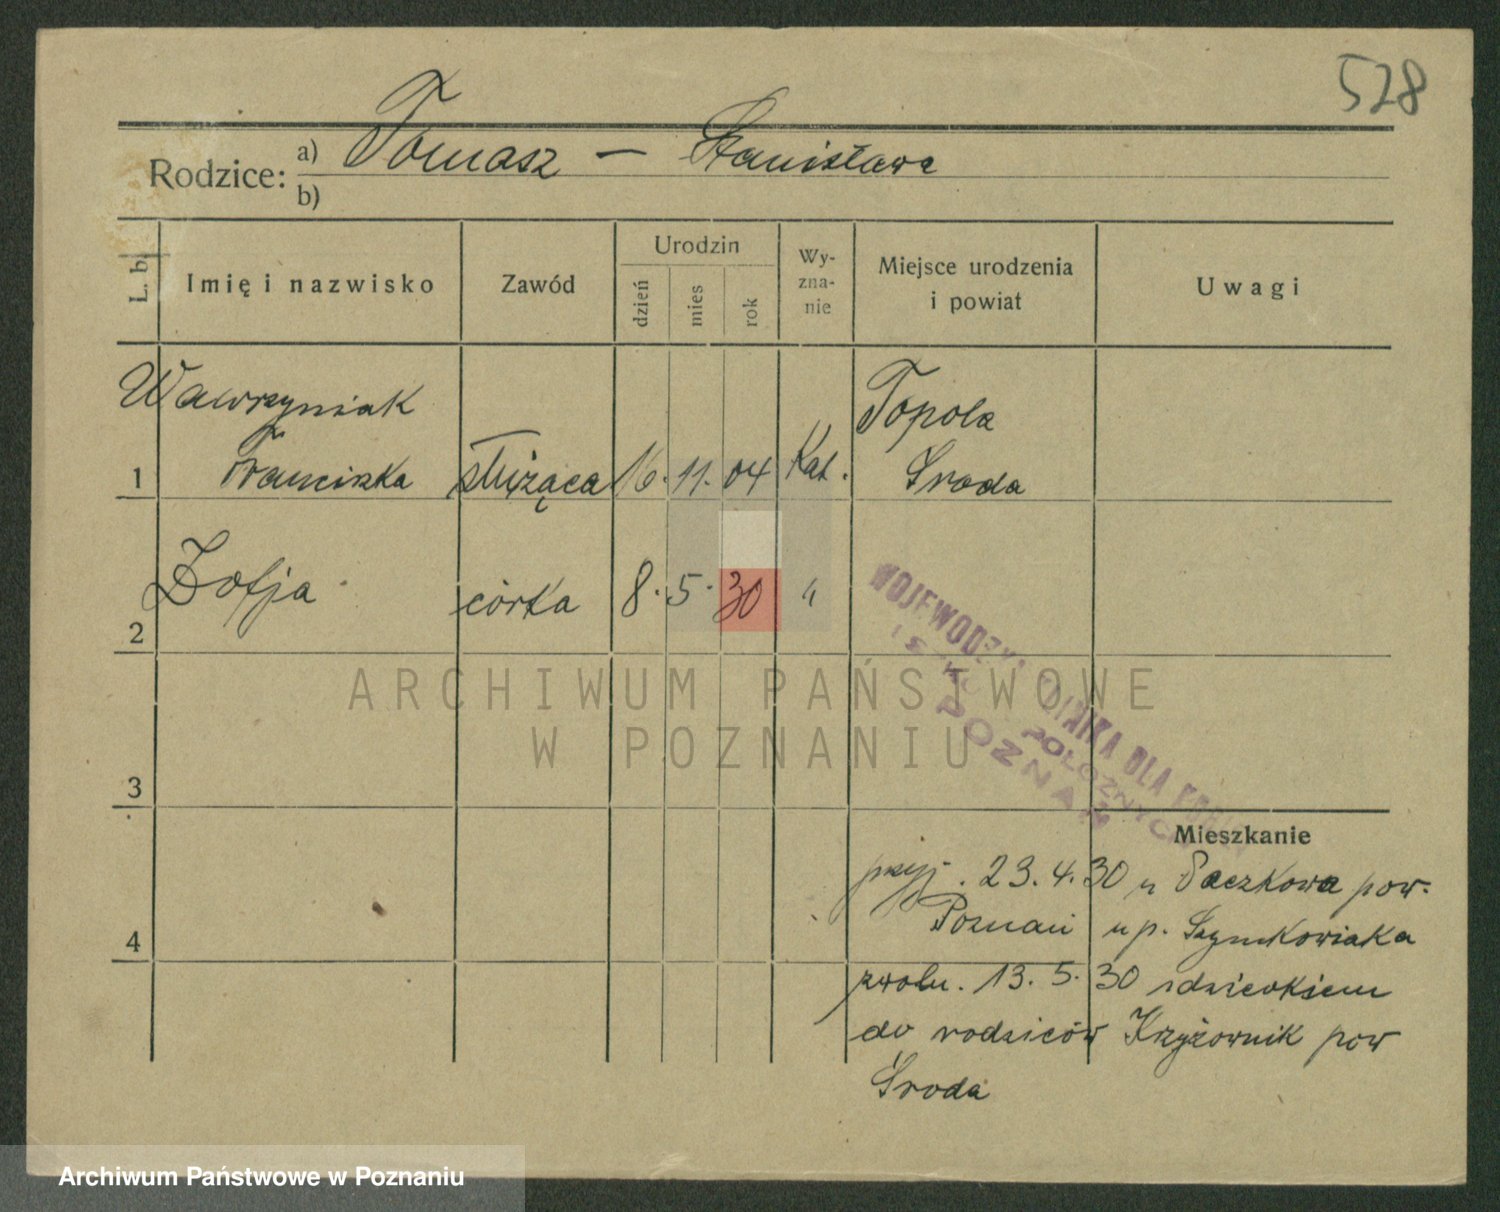 528
Rodzice: a) Tomasz — Stanisława
b)
L. b.
Imię i nazwisko
Zawód
Urodzin
dzień
mies
rok
Wy-
zna-
nie
Miejsce urodzenia
i powiat
Uwagi
Wawrzyniak
Franciszka
1
służąca
16. 11. 04
Kat.
Topola
Środa
2
Zofja
córka
8. 5. 30
"
WOJEWÓDZKA KLINIKA DLA KOBIET
POŁOŻNYCH
POZNAŃ
ARCHIWUM PAŃSTWOWE
W POZNANIU
3
Mieszkanie
przyj. 23.4.30 z Paczkowa pow.
Poznań u p. Szymkowiaka
4
zwoln. 13.5.30 z dzieckiem
do rodziców Krzyżownik pow
Środa
Archiwum Państwowe w Poznaniu